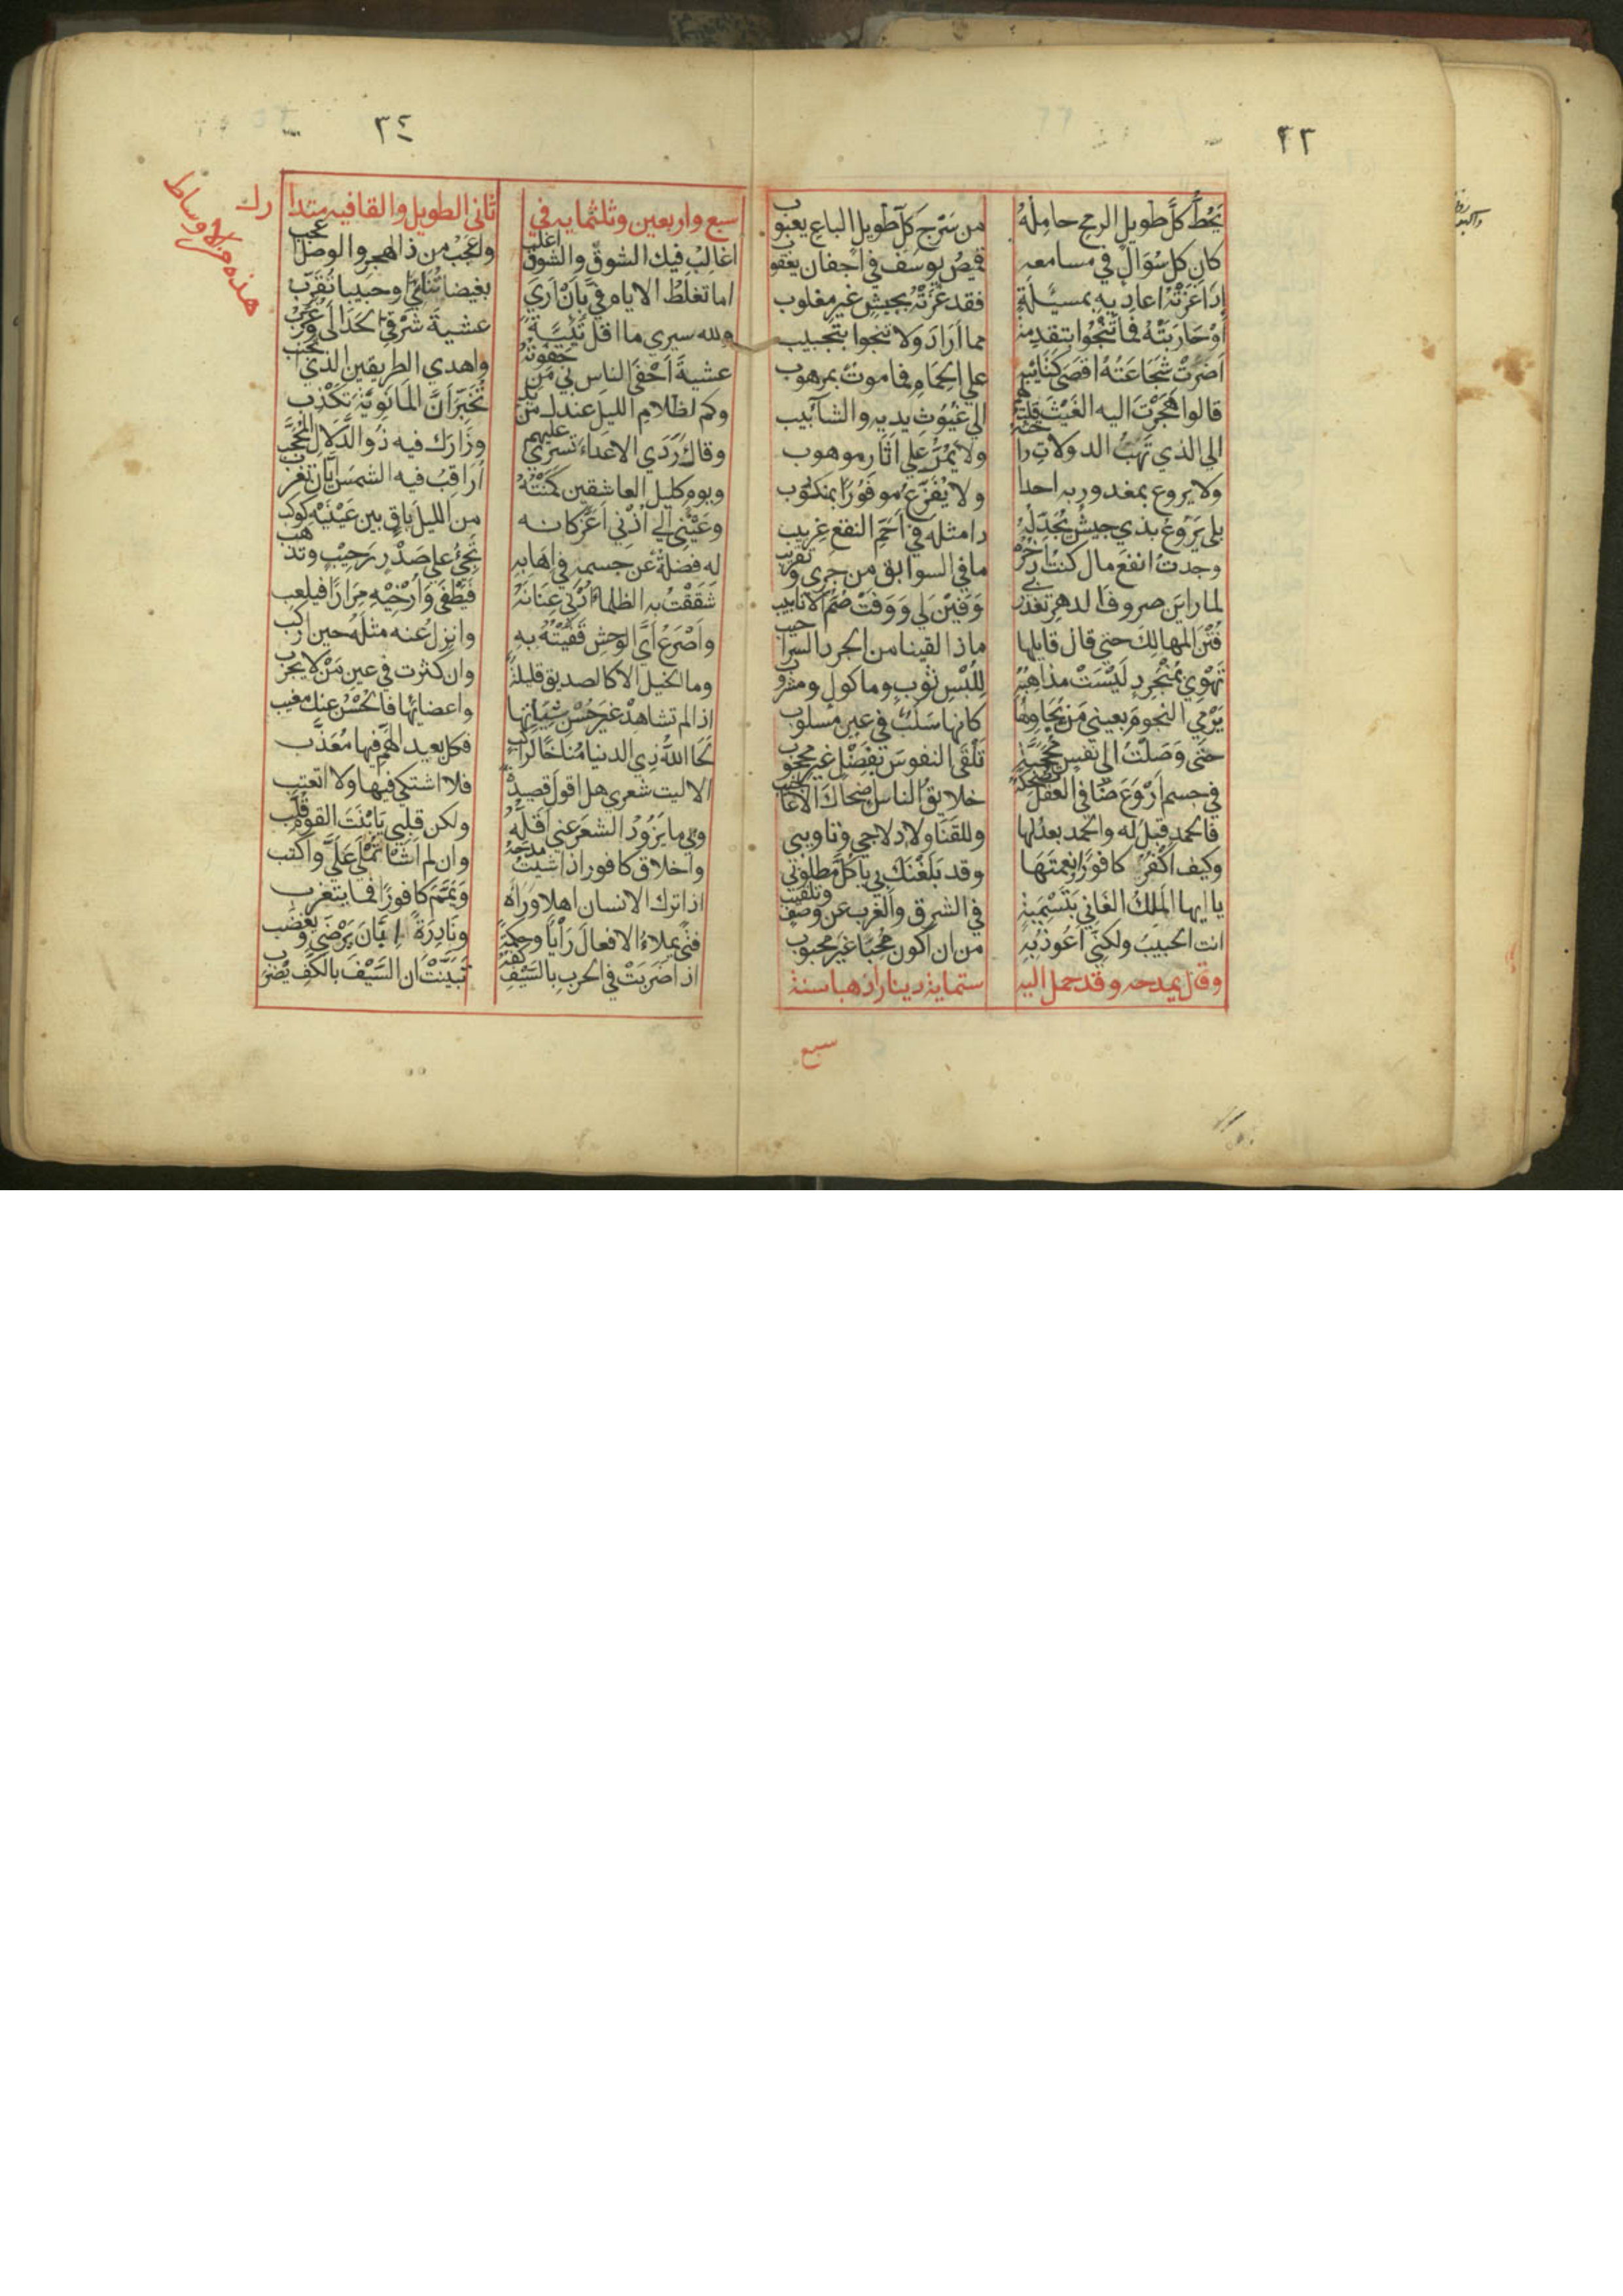 ٣٣
يَحُطُّ كلَّ طويلِ الرمح حامِلُهُ من سَرْجِ كلِّ طويل الباع يعبوب
كان كل سُوَال في مسامعه قميصُ يوسَف في اجفان يعقوب
إذا غَزَتْهُ اعاديه بمسئلة فقد غَزَتْهُ بجيشٍ غيرِ مغلوب
اوْ حَارَبَتْهُ فما تَنْجُوا بتقدمة مما أرَادَ ولا تنجوا بتجبيب
اَضَرَتْ شَجَاعَتُهُ اقصَى كتائبه على الحِمَامِ فما موتٌ بمرهوب
قالوا هَجَرْتَ اليه الغَيْثَ قلت لهم الي غُيُوثِ يديه والشآبيب
الي الذي تَهَبُ الدولاتِ راحته ولا يَمُنُّ علي اثار موهوب
ولا يروع بمغدور به احدا ولا يُفَزِّعُ موفُورًا بمنكوب
بلى يَرُوعُ بذي جيشٍ يُجَدِّلُهُ ذا مثله في اَحَمِّ النقع غربيب
وجدتُ انفعَ مال كنتُ اذخره ما في السوابق من جَرْيٍ وتقريب
لما راينَ صروفَ الدهر تغدر بي وَفَيْنَ لي وَوَفَتْ صُمُّ الانابيب
فُتْنَ المهالِكَ حتي قال قايلها ماذا لقينا من الجرد السراحيب
تَهْوِي بمُنْجَرِدٍ لَيْسَتْ مذاهِبُهُ لِلُبْسِ ثوبٍ وماكولٍ ومشروب
يَرْمِي النجومَ بعيني مَنْ يُحَاوِلُها كانها سَلَبٌ في عينِ مسلوب
حتى وَصَلْتُ الي نفسٍ مُحَجَّبَةٍ تَلْقَى النفوسَ بفَضْلٍ غيرِ محجوب
في جسم اَرْوَعَ صَافي العقل تضحكه خلايقُ الناس اضحاكَ الاعاجيب
فالحمد قبلُ له والحمد بعدُ لها وللقَنَا ولادلاجي وتاويبي
وكيف اكفُرُ كافورًا نعمتَهَا وقد بَلَغْنَكَ بي يا كلَّ مطلوبي
يا ايها المَلِكُ الغاني بتَسْمِيَةٍ في الشرق والغرب عن وصف وتلقيب
انت الحبيبُ ولكنِّي اَعُوذُ بِهِ من ان اكون مُحِبًّا غيرَ محبوب
وقال يمدحه وقد حمل اليه ستماية دينارا ذهبا سنة
سبع
٣٤
سبع واربعين وثلثمايه في ثاني الطويل والقافيه متدارك
هذه من الاوساط
اغالِبُ فيك الشوقَ والشوقُ اغلب واعجَبُ من ذا الهجر والوصلُ اعجب
اما تغلطُ الايام فيَّ بأن ارَي بغيضا تُنَائي او حبيبا تُقَرِّب
ولله سيري ما اقل تَئِيَّةً عشيةَ شَرْقِيَّ الحَدَالَى وغُرَّبُ
عشيةَ اَحْفَى الناس بي من جفوته واهدي الطريقين الذي اتجنب
وكم لظلامِ الليل عندك من يد تُخَبِّرُ اَنَّ المَانَوِيَّةَ تكْذِب
وقاك رَدَي الاعداءِ تسري عليهم وزَارَك فيه ذو الدَّلالِ المُحَجَّب
ويوم كليل العاشقين كَمَنْتُهُ اُرَاقِبُ فيه الشمسَ ايَّان تغرب
وعَيْنِي الي اُذْنَي اَغَرَّ كانه من الليلِ باقٍ بين عَيْنَيْهِ كوكب
له فضلةٌ عن جسمه في اهَابِهِ تَجِيُ علي صَدْرٍ رحِيْبٍ وتذهب
شَقَقْتُ به الظلماءَ اُدْنِي عِنَانَهُ فَيَطْغَى وَاُرْخِيْهِ مِرَارًا فيلعب
واَصْرَعُ اَيَّ الوحشِ قَفَّيْتُهُ بِهِ وانزِلُ عنه مثلَهُ حين اركب
وما الخيل الا كالصديق قليلةٌ وان كثرت في عين مَنْ لا يجرب
اذا لم تشاهِدْ غيرَ حُسْنِ شِيَاتِها واعضائِها فالحُسْنُ عنك مغيب
لَحَا اللهُ ذِي الدنيا مُنَاخًا لراكب فكل بعيد الهَمِّ فيها مُعَذَّب
الا ليت شعري هل اقول قصيدةً فلا اشتكي فيها ولا اتعتب
وبي ما يَزُوْدُ الشعرَ عني اَقَلُّهُ ولكن قلبي يَا بْنَتَ القوم قُلَّب
واخلاق كافور اذا شئتُ مدحه وان لم اشَا تُمْلِي عَلَيَّ واكتب
اذا ترك الانسان اهلا ورَاءَه ويَمَّمَ كافورًا فما يتغرب
فتًى يملاءُ الافعالَ رَأيًا وحِكْمَةً ونَادِرَةً اَيَّانَ يَرْضَى ويغضب
اذا ضَرَبَتْ في الحربِ بالسَّيْفِ كفه تَبَيَّنْتَ ان السَّيْفَ بالكَفِّ يضرب